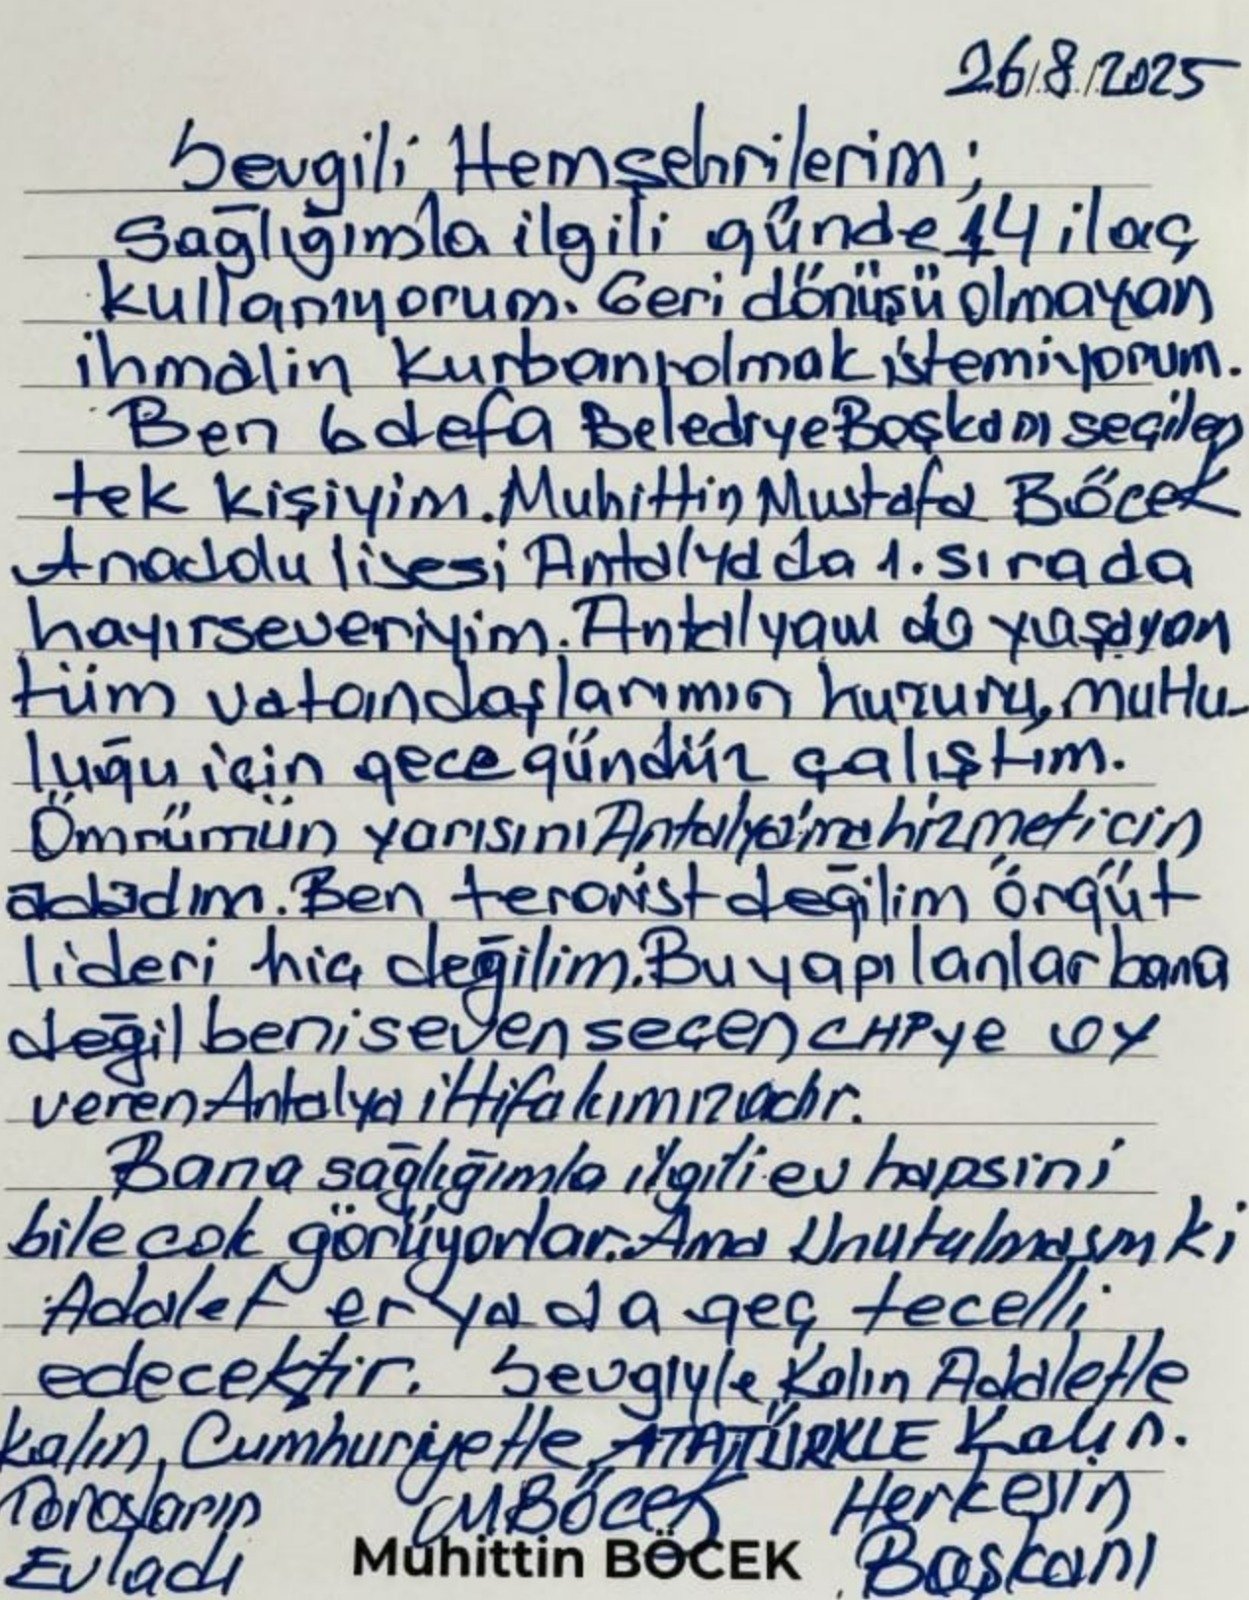 26/8/2025
Sevgili Hemşehrilerim;
Sağlığımla ilgili günde 14 ilaç
kullanıyorum. Geri dönüşü olmayan
ihmalin kurbanı olmak istemiyorum.
Ben 6 defa Belediye Başkanı seçilen
tek kişiyim. Muhittin Mustafa Böcek
Anadolu lisesi Antalyada 1. sırada
hayırseveriyim. Antalyam da yaşayan
tüm vatandaşlarımın huzuru, mutlu-
luğu için gece gündüz çalıştım.
Ömrümün yarısını Antalya'ma hizmet için
adadım. Ben terörist değilim örgüt
lideri hiç değilim. Bu yapılanlar bana
değil beni seven seçen CHPye oy
veren Antalya ittifakımızadır.
Bana sağlığımla ilgili ev hapsini
bile çok görüyorlar. Ama Unutulmasın ki
Adalet er ya da geç tecelli
edecektir. Sevgiyle Kalın Adaletle
kalın, Cumhuriyetle, ATATÜRKLE Kalın.
Torosların MBÖCEK Herkesin
Evladı Muhittin BÖCEK Başkanı